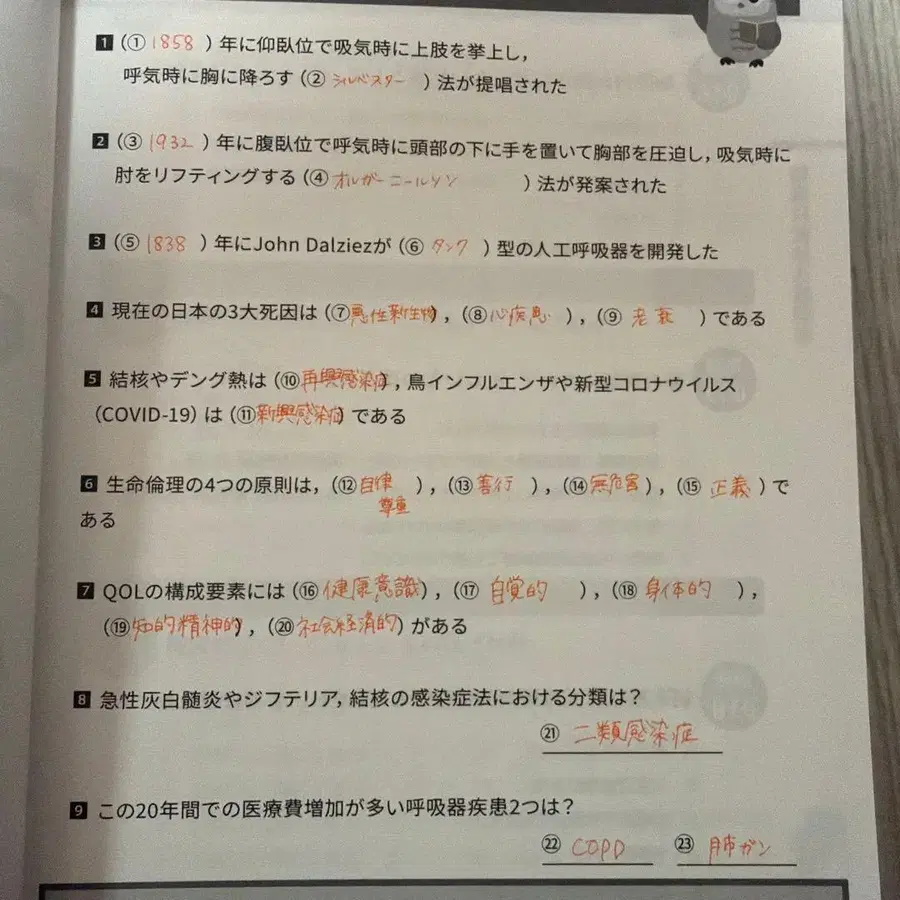 1 (① 1858 )年に仰臥位で吸気時に上肢を挙上し,
呼気時に胸に降ろす(② シルベスター )法が提唱された
2 (③ 1932 )年に腹臥位で呼気時に頭部の下に手を置いて胸部を圧迫し,吸気時に
肘をリフティングする(④ オルガーニールソン )法が発案された
3 (⑤ 1838 )年にJohn Dalziezが(⑥ タンク )型の人工呼吸器を開発した
4 現在の日本の3大死因は(⑦悪性新生物),(⑧心疾患 ),(⑨ 老衰 )である
5 結核やデング熱は(⑩再興感染症),鳥インフルエンザや新型コロナウイルス
(COVID-19)は(⑪新興感染症)である
6 生命倫理の4つの原則は,(⑫自律尊重 ),(⑬善行 ),(⑭無危害),(⑮ 正義 )で
ある
7 QOLの構成要素には(⑯健康意識),(⑰ 自覚的 ),(⑱ 身体的 ),
(⑲知的精神的),(⑳社会経済的)がある
8 急性灰白髄炎やジフテリア,結核の感染症法における分類は?
㉑ 二類感染症
9 この20年間での医療費増加が多い呼吸器疾患2つは?
㉒ COPD ㉓ 肺ガン